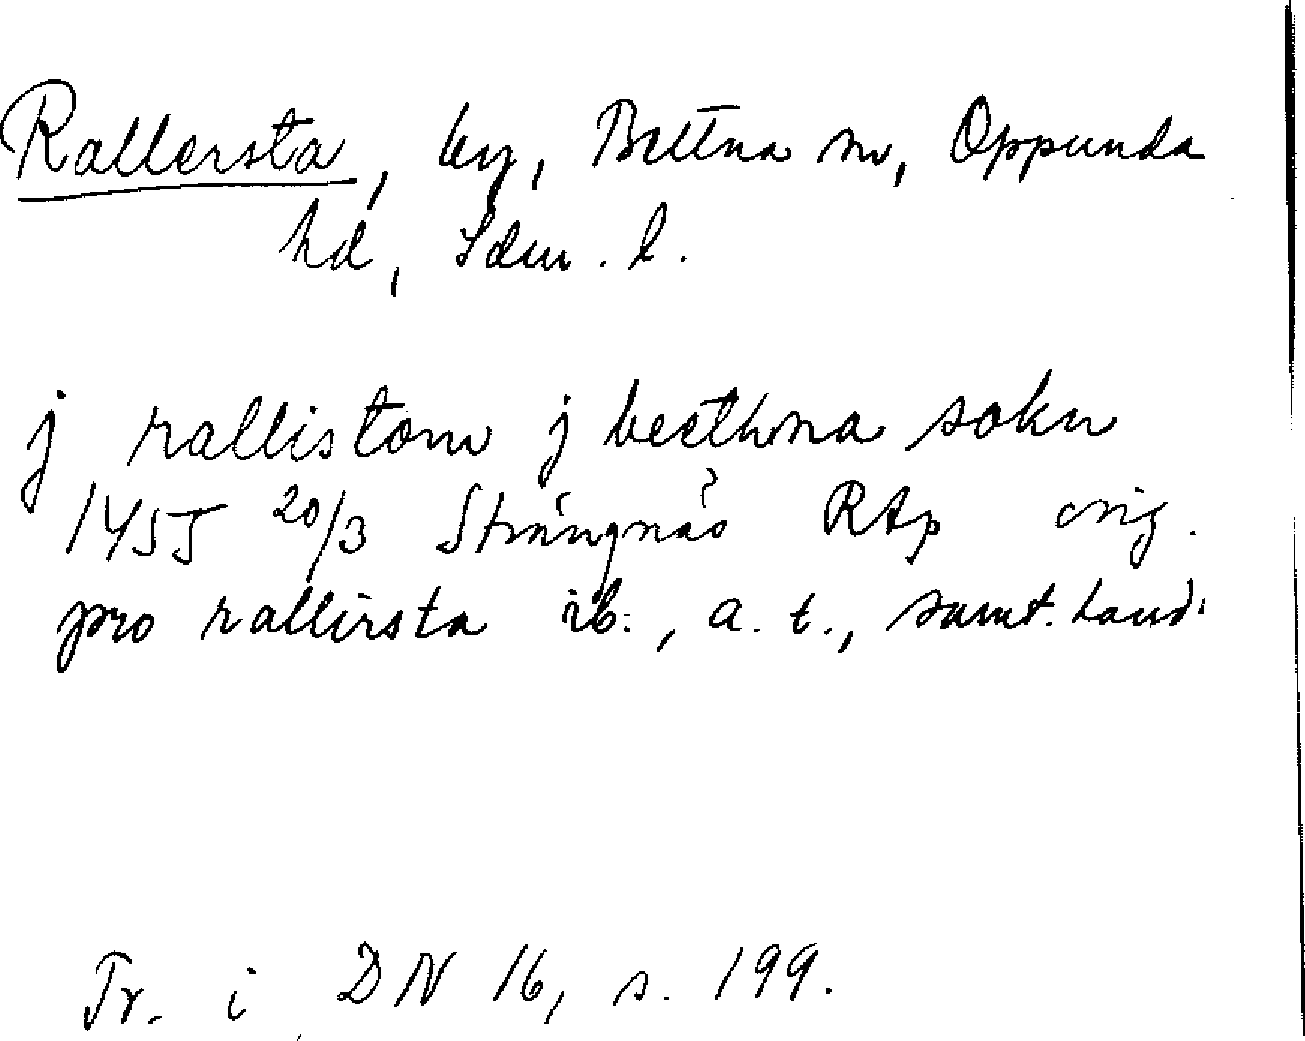 Rallersta, by, Bettna sn, Oppunda
hd, Sdm. l.
j rallistom j beethna sokn
1455 20/3 Strängnäs RAp orig.
pro rallirsta ib., a. t., samt. hand.
Tr. i DN 16, s. 199.